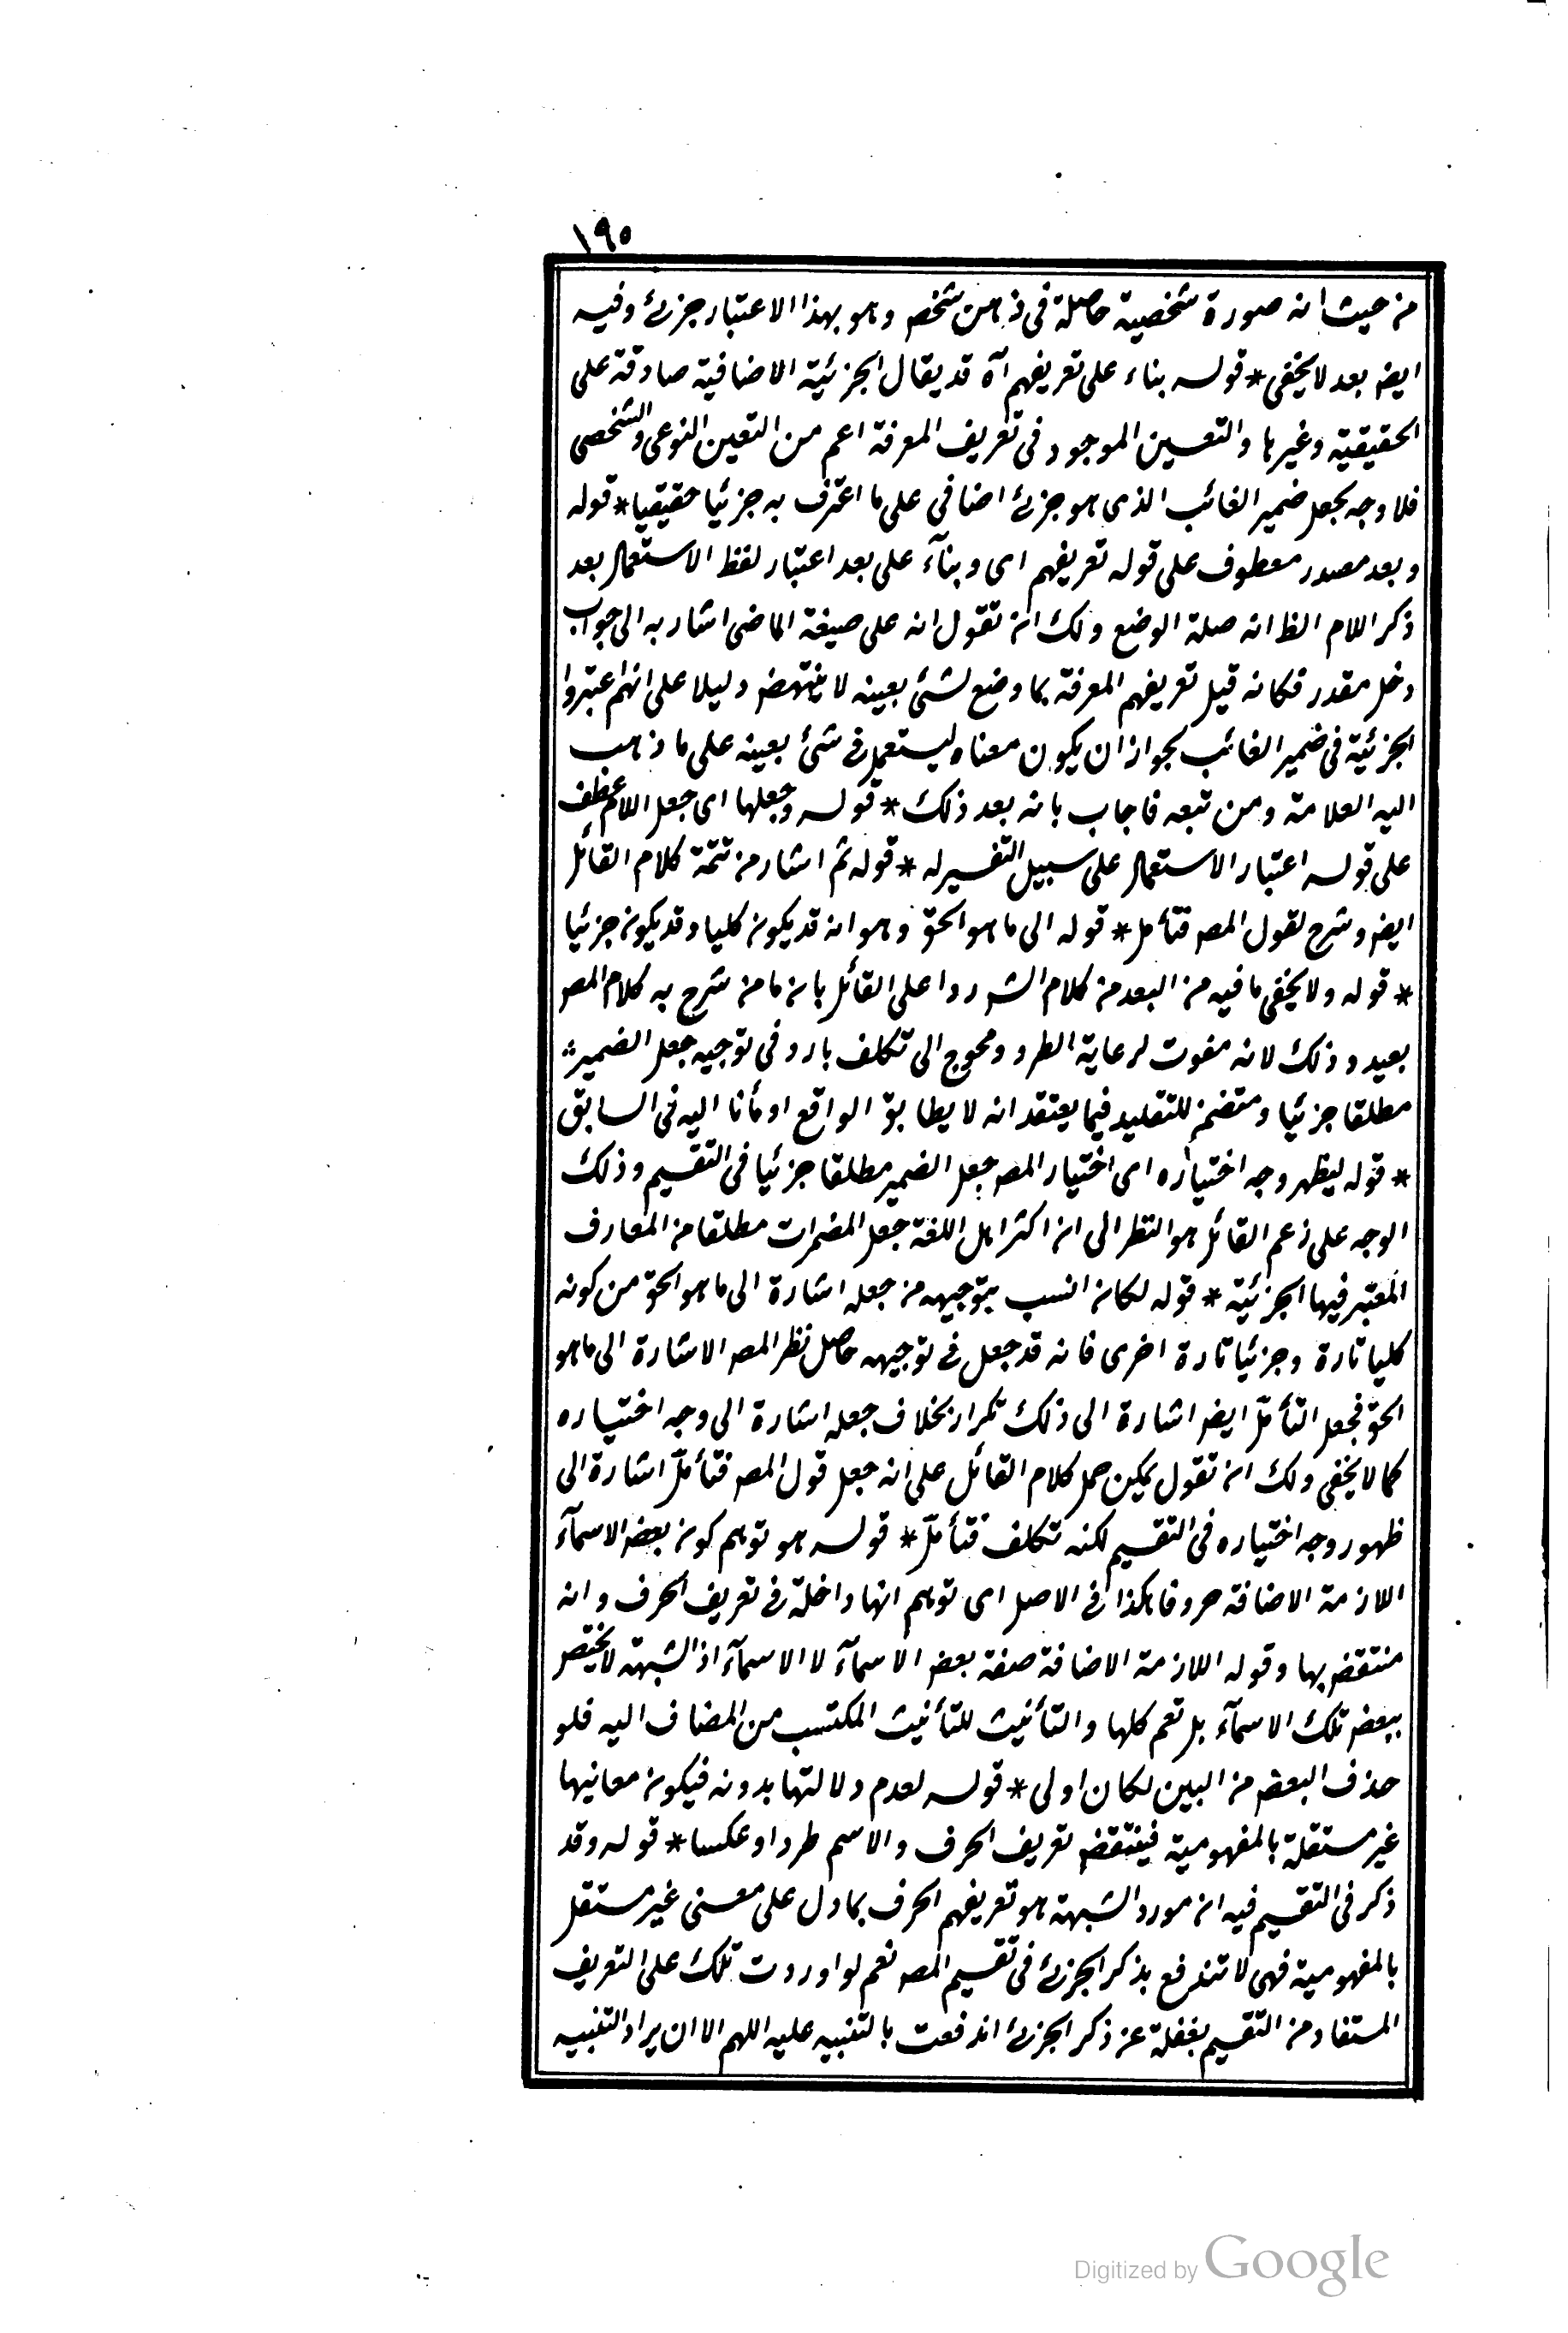 ١٩٥
من حيث انه صورة شخصية حاصلة فى ذهن شخص وهو بهذا الاعتبار جزئى وفيه
ايضا بعد لا يخفى * قوله بناء على تعريفهم آه قد يقال الجزئية الاضافية صادقة على
الحقيقية وغيرها والتعيين الموجود فى تعريف المعرفة اعم من التعين النوعى والشخصى
فلا وجه لجعل ضمير الغائب الذى هو جزئى اضافى على ما اعترف به جزئيا حقيقيا * قوله
وبعد مصدر معطوف على قوله تعريفهم اى وبنآء على بعد اعتبار لفظ الاستعمال بعد
ذكر اللام الظ انه صلة الوضع ولك ان تقول انه على صيغة الماضى اشار به الى جواب
دخل مقدر فكانه قيل تعريفهم المعرفة بما وضع لشئ بعينه لا ينتهض دليلا على انهم اعتبروا
الجزئية فى ضمير الغائب لجواز ان يكون معناه ليستعمل فى شئ بعينه على ما ذهب
اليه العلامة ومن تبعه فاجاب بانه بعد ذلك * قوله وجعلها اى جعل اللام عطف
على قوله اعتبار الاستعمال على سبيل التفسير له * قوله ثم اشار من تتمة كلام القائل
ايضا وشرح لقول المص فتأمل * قوله الى ما هو الحق وهو انه قد يكون كليا وقد يكون جزئيا
* قوله ولا يخفى ما فيه من البعد من كلام الشر ردا على القائل بان ما من شرح به كلام المص
بعيد وذلك لانه مفوت لرعاية الطرد ومحوج الى تكلف بارد فى توجيه جعل الضمير
مطلقا جزئيا ومتضمن للتقليد فيما يعتقد انه لا يطابق الواقع اومأنا اليه فى السابق
* قوله ليظهر وجه اختياره اى اختيار المص جعل الضمير مطلقا جزئيا فى التقسيم وذلك
الوجه على زعم القائل هو النظر الى ان اكثر اهل اللغة جعل المضمرات مطلقا من المعارف
المعتبر فيها الجزئية * قوله لكان انسب بتوجيهه من جعله اشارة الى ما هو الحق من كونه
كليا تارة وجزئيا تارة اخرى فانه قد جعل فى توجيهه حاصل نظر المص الاشارة الى ما هو
الحق فجعل التأمل ايضا اشارة الى ذلك تكرار بخلاف جعله اشارة الى وجه اختياره
كما لا يخفى ولك ان تقول يمكن حمل كلام القائل على انه جعل قول المص فتأمل اشارة الى
ظهور وجه اختياره فى التقسيم لكنه تكلف فتأمل * قوله هو توهم كون بعض الاسمآء
اللازمة الاضافة حروفا هكذا فى الاصل اى توهم انها داخلة فى تعريف الحرف وانه
منتقض بها وقوله اللازمة الاضافة صفة بعض الاسمآء لا الاسمآء اذ الشبهة لا يختص
ببعض تلك الاسمآء بل تعم كلها والتأنيث للتأنيث المكتسب من المضاف اليه فلو
حذف البعض من البين لكان اولى * قوله لعدم دلالتها بدونه فيكون معانيها
غير مستقلة بالمفهومية فينتقض تعريف الحرف والاسم طردا وعكسا * قوله وقد
ذكر فى التقسيم فيه ان مورد الشبهة هو تعريفهم الحرف بما دل على معنى غير مستقل
بالمفهومية فهى لا تندفع بذكر الجزئى فى تقسيم المص نعم لو اوردت تلك على التعريف
المستفاد من التقسيم بغفلة عن ذكر الجزئى اندفعت بالتنبيه عليه اللهم الا ان يراد التنبيه
Digitized by Google